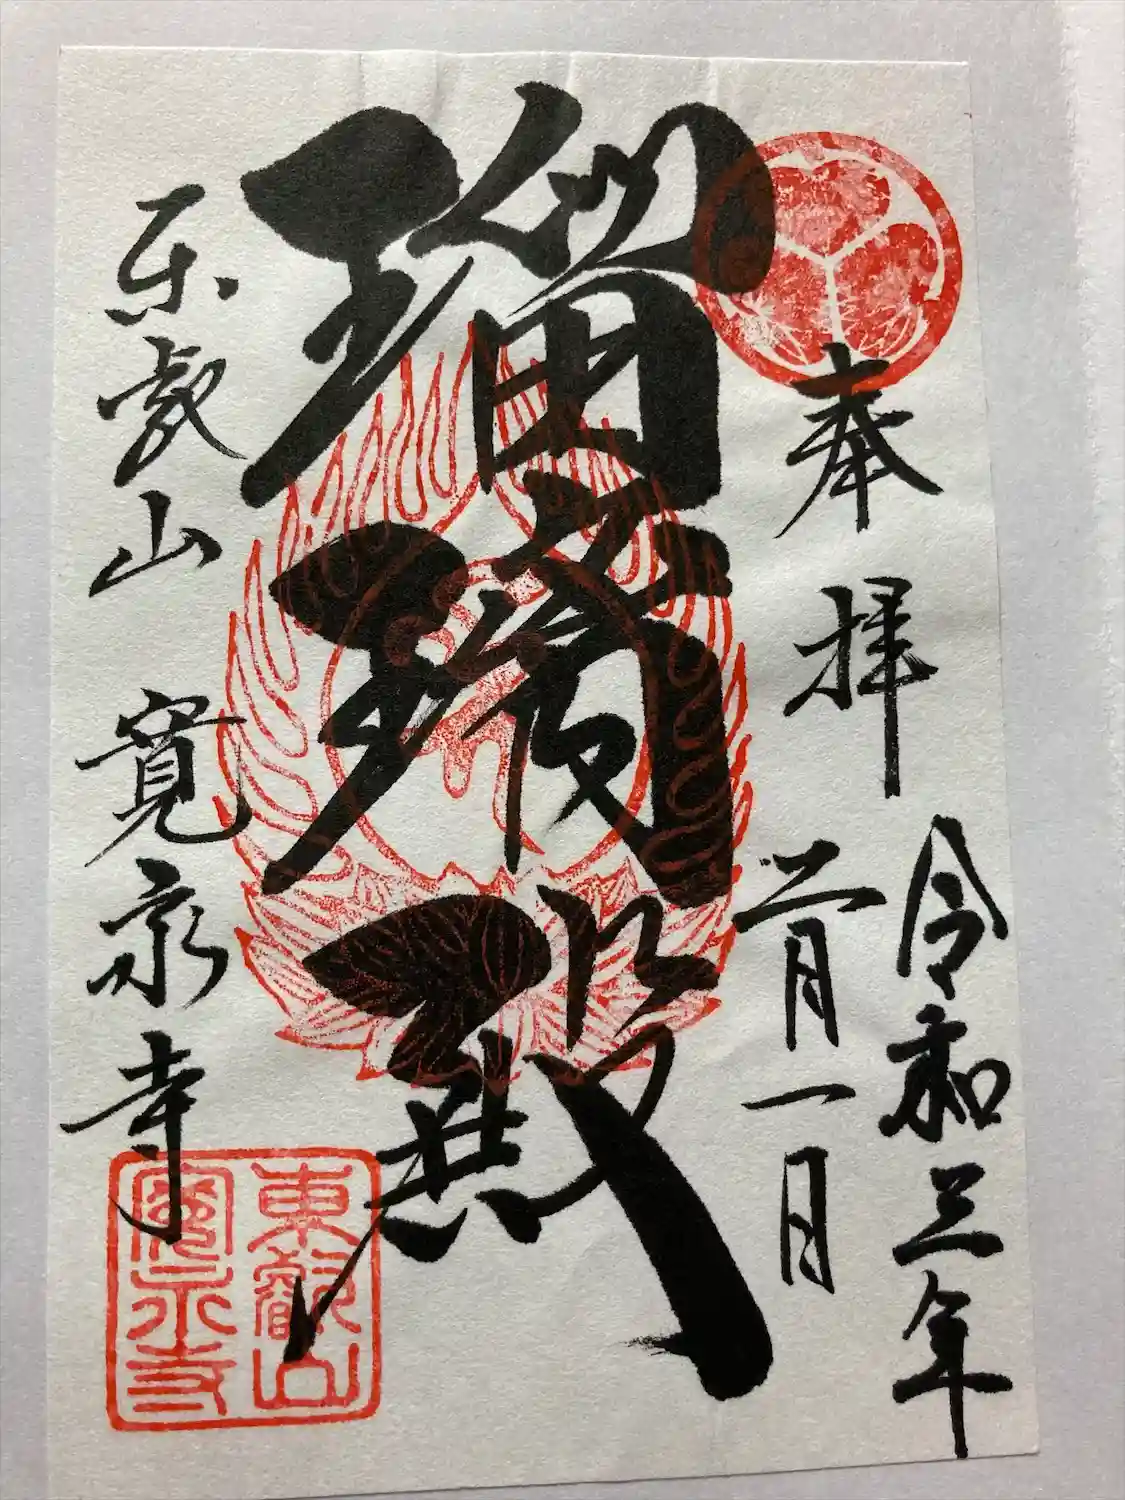 奉拝
令和三年
二月一日
瑠璃殿
东叡山 寛永寺
東叡山
寛永寺